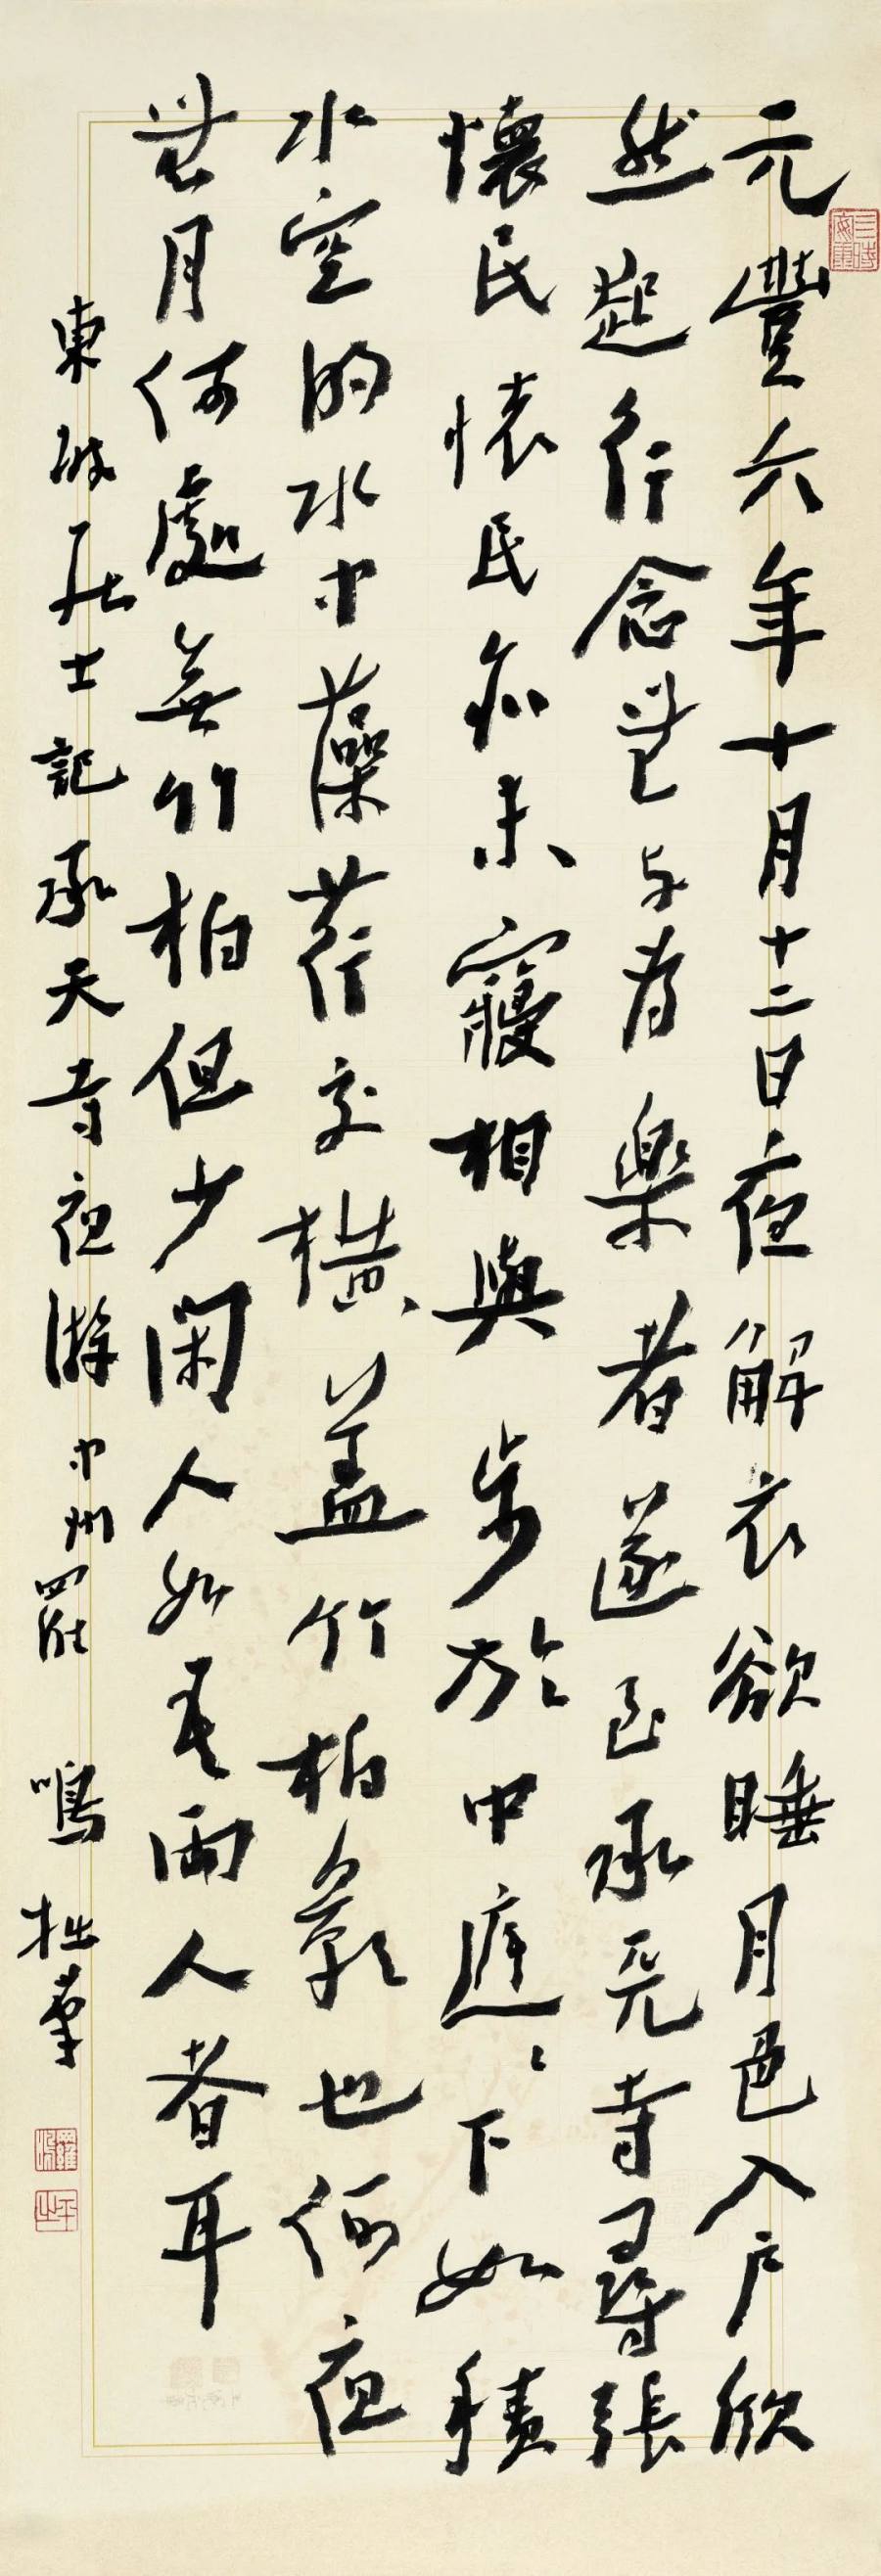 元豐六年十月十二日夜解衣欲睡月色入户欣
然起行念無与為樂者遂至承天寺尋張
懷民懷民亦未寢相與步於中庭〻下如積
水空明水中藻荇交橫蓋竹柏影也何夜
無月何處無竹柏但少閑人如吾兩人者耳
東坡居士記承天寺夜游 中州羅鳴拙筆
羅鳴